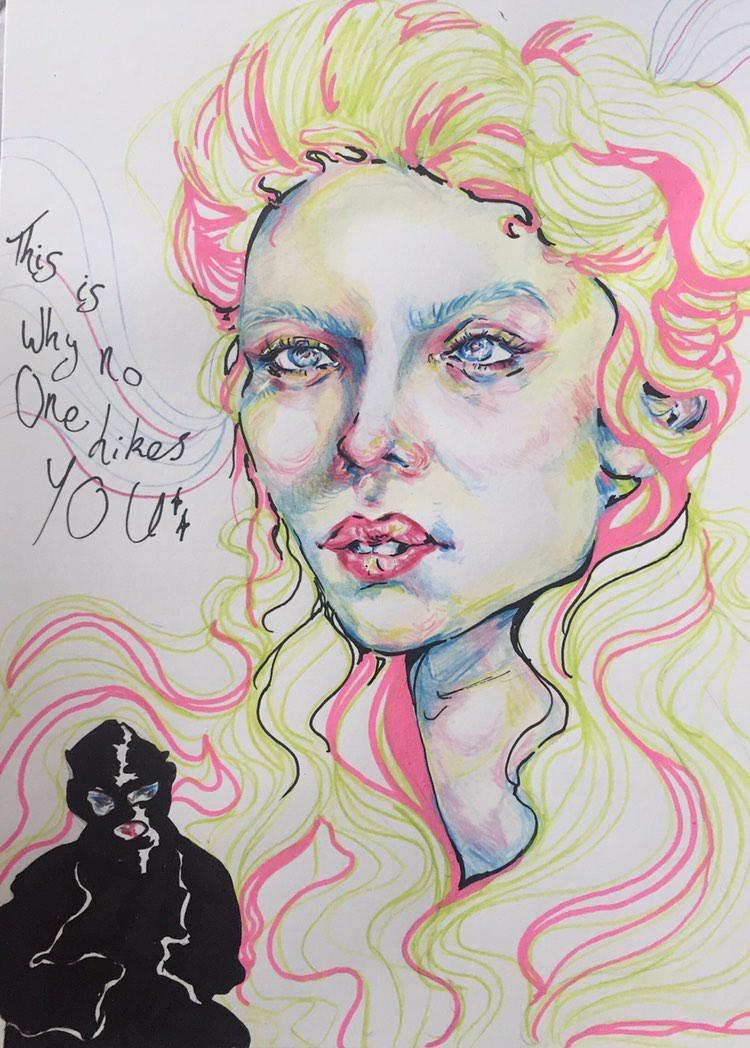 This is
Why no
One Likes
YOU